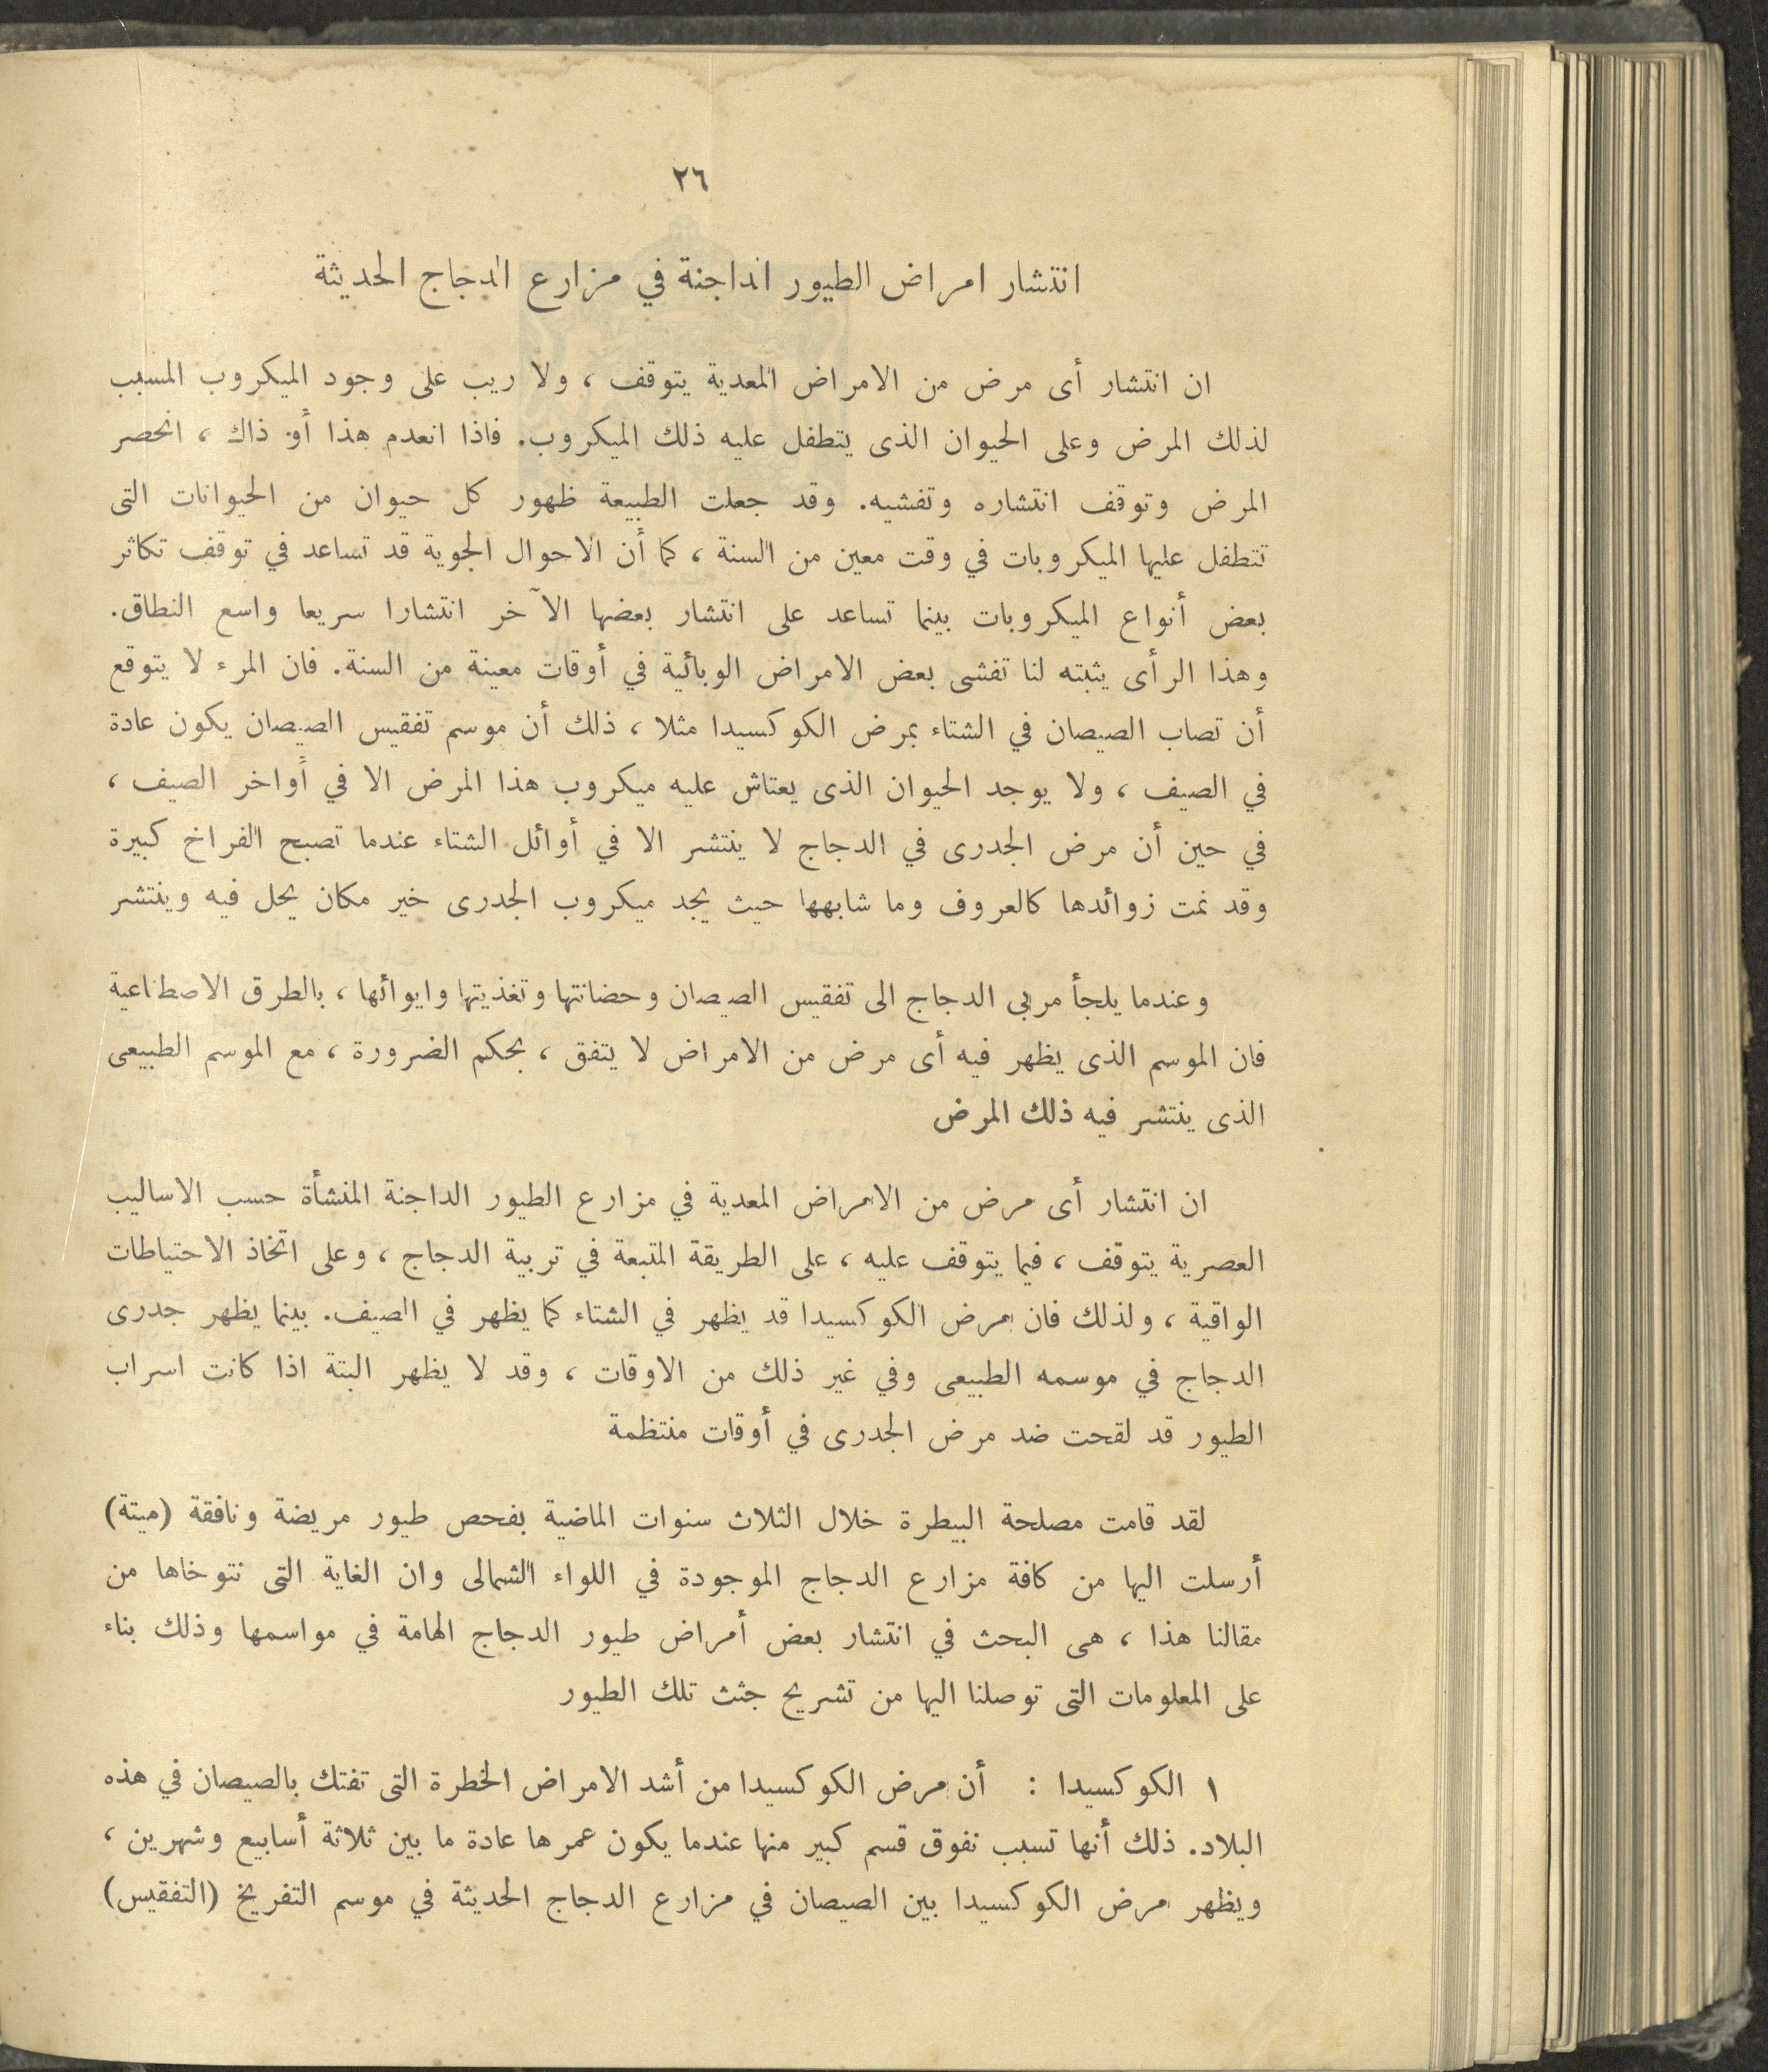 ٢٦
انتشار امراض الطيور الداجنة في مزارع الدجاج الحديثة
ان انتشار أى مرض من الامراض المعدية يتوقف ، ولا ريب على وجود الميكروب المسبب
لذلك المرض وعلى الحيوان الذى يتطفل عليه ذلك الميكروب. فاذا انعدم هذا أو ذاك ، انحصر
المرض وتوقف انتشاره وتفشيه. وقد جعلت الطبيعة ظهور كل حيوان من الحيوانات التى
تتطفل عليها الميكروبات في وقت معين من السنة ، كما أن الاحوال الجوية قد تساعد في توقف تكاثر
بعض أنواع الميكروبات بينما تساعد على انتشار بعضها الآخر انتشارا سريعا واسع النطاق.
وهذا الرأى يثبته لنا تفشى بعض الامراض الوبائية في أوقات معينة من السنة. فان المرء لا يتوقع
أن تصاب الصيصان في الشتاء بمرض الكوكسيدا مثلا ، ذلك أن موسم تفقيس الصيصان يكون عادة
في الصيف ، ولا يوجد الحيوان الذى يعتاش عليه ميكروب هذا المرض الا في أواخر الصيف ،
في حين أن مرض الجدرى في الدجاج لا ينتشر الا في أوائل الشتاء عندما تصبح الفراخ كبيرة
وقد نمت زوائدها كالعروف وما شابهها حيث يجد ميكروب الجدرى خير مكان يحل فيه وينتشر
وعندما يلجأ مربى الدجاج الى تفقيس الصيصان وحضانتها وتغذيتها وايوائها ، بالطرق الاصطناعية
فان الموسم الذى يظهر فيه أى مرض من الامراض لا يتفق ، بحكم الضرورة ، مع الموسم الطبيعى
الذى ينتشر فيه ذلك المرض
ان انتشار أى مرض من الامراض المعدية في مزارع الطيور الداجنة المنشأة حسب الاساليب
العصرية يتوقف ، فيما يتوقف عليه ، على الطريقة المتبعة في تربية الدجاج ، وعلى اتخاذ الاحتياطات
الواقية ، ولذلك فان مرض الكوكسيدا قد يظهر في الشتاء كما يظهر في الصيف. بينما يظهر جدرى
الدجاج في موسمه الطبيعى وفي غير ذلك من الاوقات ، وقد لا يظهر البتة اذا كانت اسراب
الطيور قد لقحت ضد مرض الجدرى في أوقات منتظمة
لقد قامت مصلحة البيطرة خلال الثلاث سنوات الماضية بفحص طيور مريضة ونافقة (ميتة)
أرسلت اليها من كافة مزارع الدجاج الموجودة في اللواء الشمالى وان الغاية التى نتوخاها من
مقالنا هذا ، هى البحث في انتشار بعض أمراض طيور الدجاج الهامة في مواسمها وذلك بناء
على المعلومات التى توصلنا اليها من تشريح جثث تلك الطيور
١ الكوكسيدا : أن مرض الكوكسيدا من أشد الامراض الخطرة التى تفتك بالصيصان في هذه
البلاد. ذلك أنها تسبب نفوق قسم كبير منها عندما يكون عمرها عادة ما بين ثلاثة أسابيع وشهرين ،
ويظهر مرض الكوكسيدا بين الصيصان في مزارع الدجاج الحديثة في موسم التفريخ (التفقيس)